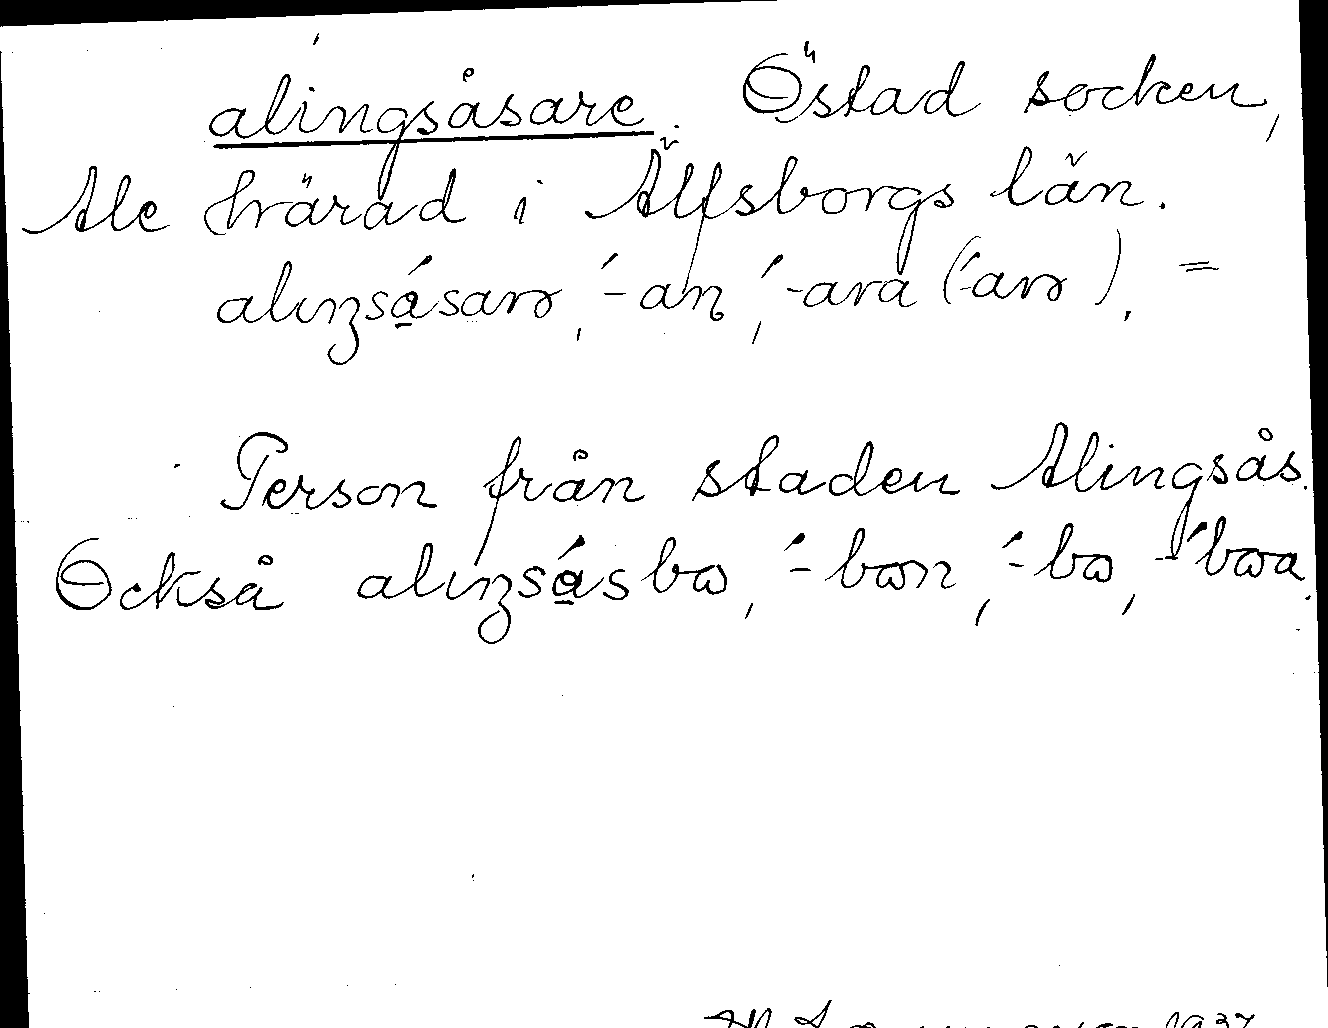 alingsåsare. Östad socken,
Ale härad i Älfsborgs län.
aliŋsåsarə, ´-an, ´-ara (´-arə). =
Person från staden Alingsås.
Också aliŋsåsbω, ´-bωn, ´-bω, -´bωa.
1937